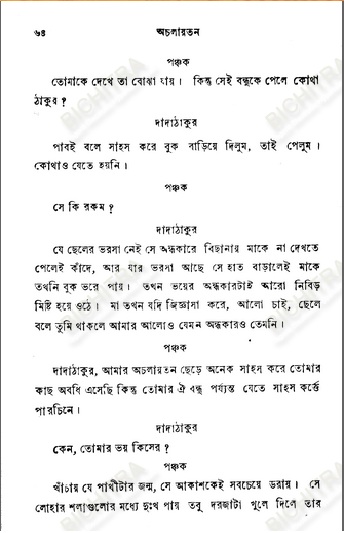 ৬৪ অচলায়তন
পঞ্চক
তোমাকে দেখে তা বোঝা যায়। কিন্তু সেই বন্ধুকে পেলে কোথা
ঠাকুর ?
দাদাঠাকুর
পাবই বলে সাহস করে বুক বাড়িয়ে দিলুম, তাই পেলুম।
কোথাও যেতে হয়নি।
পঞ্চক
সে কি রকম ?
দাদাঠাকুর
যে ছেলের ভরসা নেই সে অন্ধকারে বিছানায় মাকে না দেখতে
পেলেই কাঁদে, আর যার ভরসা আছে সে হাত বাড়ালেই মাকে
তখনি বুক ভরে পায়। তখন ভয়ের অন্ধকারটাই আরো নিবিড়
মিষ্টি হয়ে ওঠে। মা তখন যদি জিজ্ঞাসা করে, আলো চাই, ছেলে
বলে তুমি থাকলে আমার আলোও যেমন অন্ধকারও তেমনি।
পঞ্চক
দাদাঠাকুর, আমার অচলায়তন ছেড়ে অনেক সাহস করে তোমার
কাছ অবধি এসেছি কিন্তু তোমার ঐ বন্ধু পর্য্যন্ত যেতে সাহস কর্ত্তে
পারচিনে।
দাদাঠাকুর
কেন, তোমার ভয় কিসের ?
পঞ্চক
খাঁচায় যে পাখীটার জন্ম, সে আকাশকেই সবচেয়ে ডরায়। সে
লোহার শলাগুলোর মধ্যে দুঃখ পায় তবু দরজাটা খুলে দিলে তার
BICHITRA